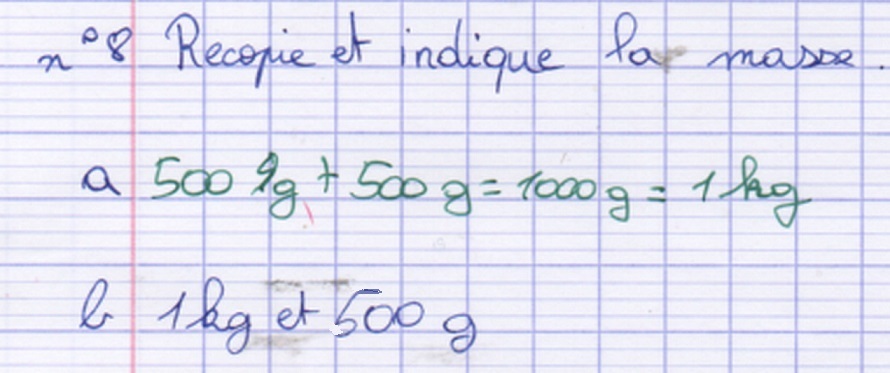 n°8 Recopie et indique la masse.
a 500 g + 500 g = 1000 g = 1 kg
b 1 kg et 500 g